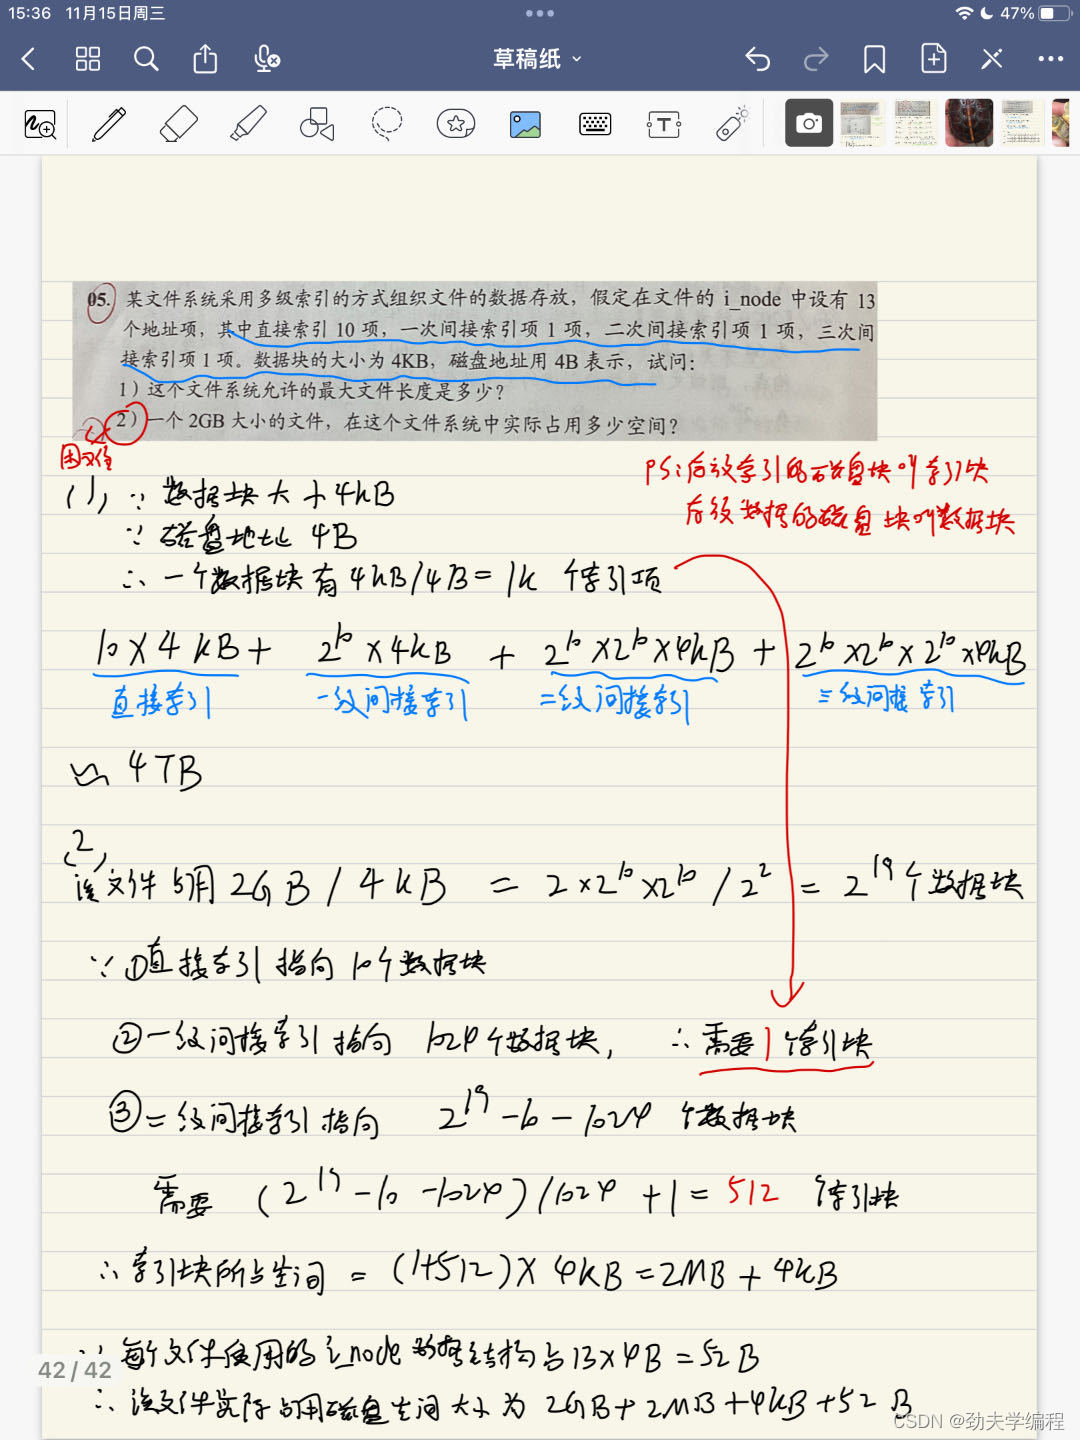 15:36 11月15日周三
47%
草稿纸
05. 某文件系统采用多级索引的方式组织文件的数据存放，假定在文件的 i_node 中设有 13
个地址项，其中直接索引 10 项，一次间接索引项 1 项，二次间接索引项 1 项，三次间
接索引项 1 项。数据块的大小为 4KB，磁盘地址用 4B 表示，试问：
1）这个文件系统允许的最大文件长度是多少？
2）一个 2GB 大小的文件，在这个文件系统中实际占用多少空间？
PS:存放索引的磁盘块叫索引块
存放数据的磁盘块叫数据块
(1) ∵ 数据块大小4kB
∵ 磁盘地址 4B
∴ 一个数据块有 4kB/4B = 1k 个索引项
10 × 4 kB + 2^10 × 4kB + 2^10 × 2^10 × 4kB + 2^10 × 2^10 × 2^10 × 4kB
直接索引 一级间接索引 二级间接索引 三级间接索引
≈ 4TB
(2)
该文件占用 2GB / 4kB = 2 × 2^10 × 2^10 / 2^2 = 2^19 个数据块
∵ ①直接索引指向 10个数据块
②一级间接索引指向 1024个数据块, ∴ 需要 1 个索引块
③二级间接索引指向 2^19 - 10 - 1024 个数据块
需要 (2^19 - 10 - 1024) / 1024 + 1 = 512 个索引块
∴ 索引块所占空间 = (1+512) × 4kB = 2MB + 4kB
∵ 每个文件使用的 i_node 数据结构占 13 × 4B = 52B
42 / 42
∴ 该文件实际占用磁盘空间大小为 2GB + 2MB + 4kB + 52 B
CSDN @劲夫学编程